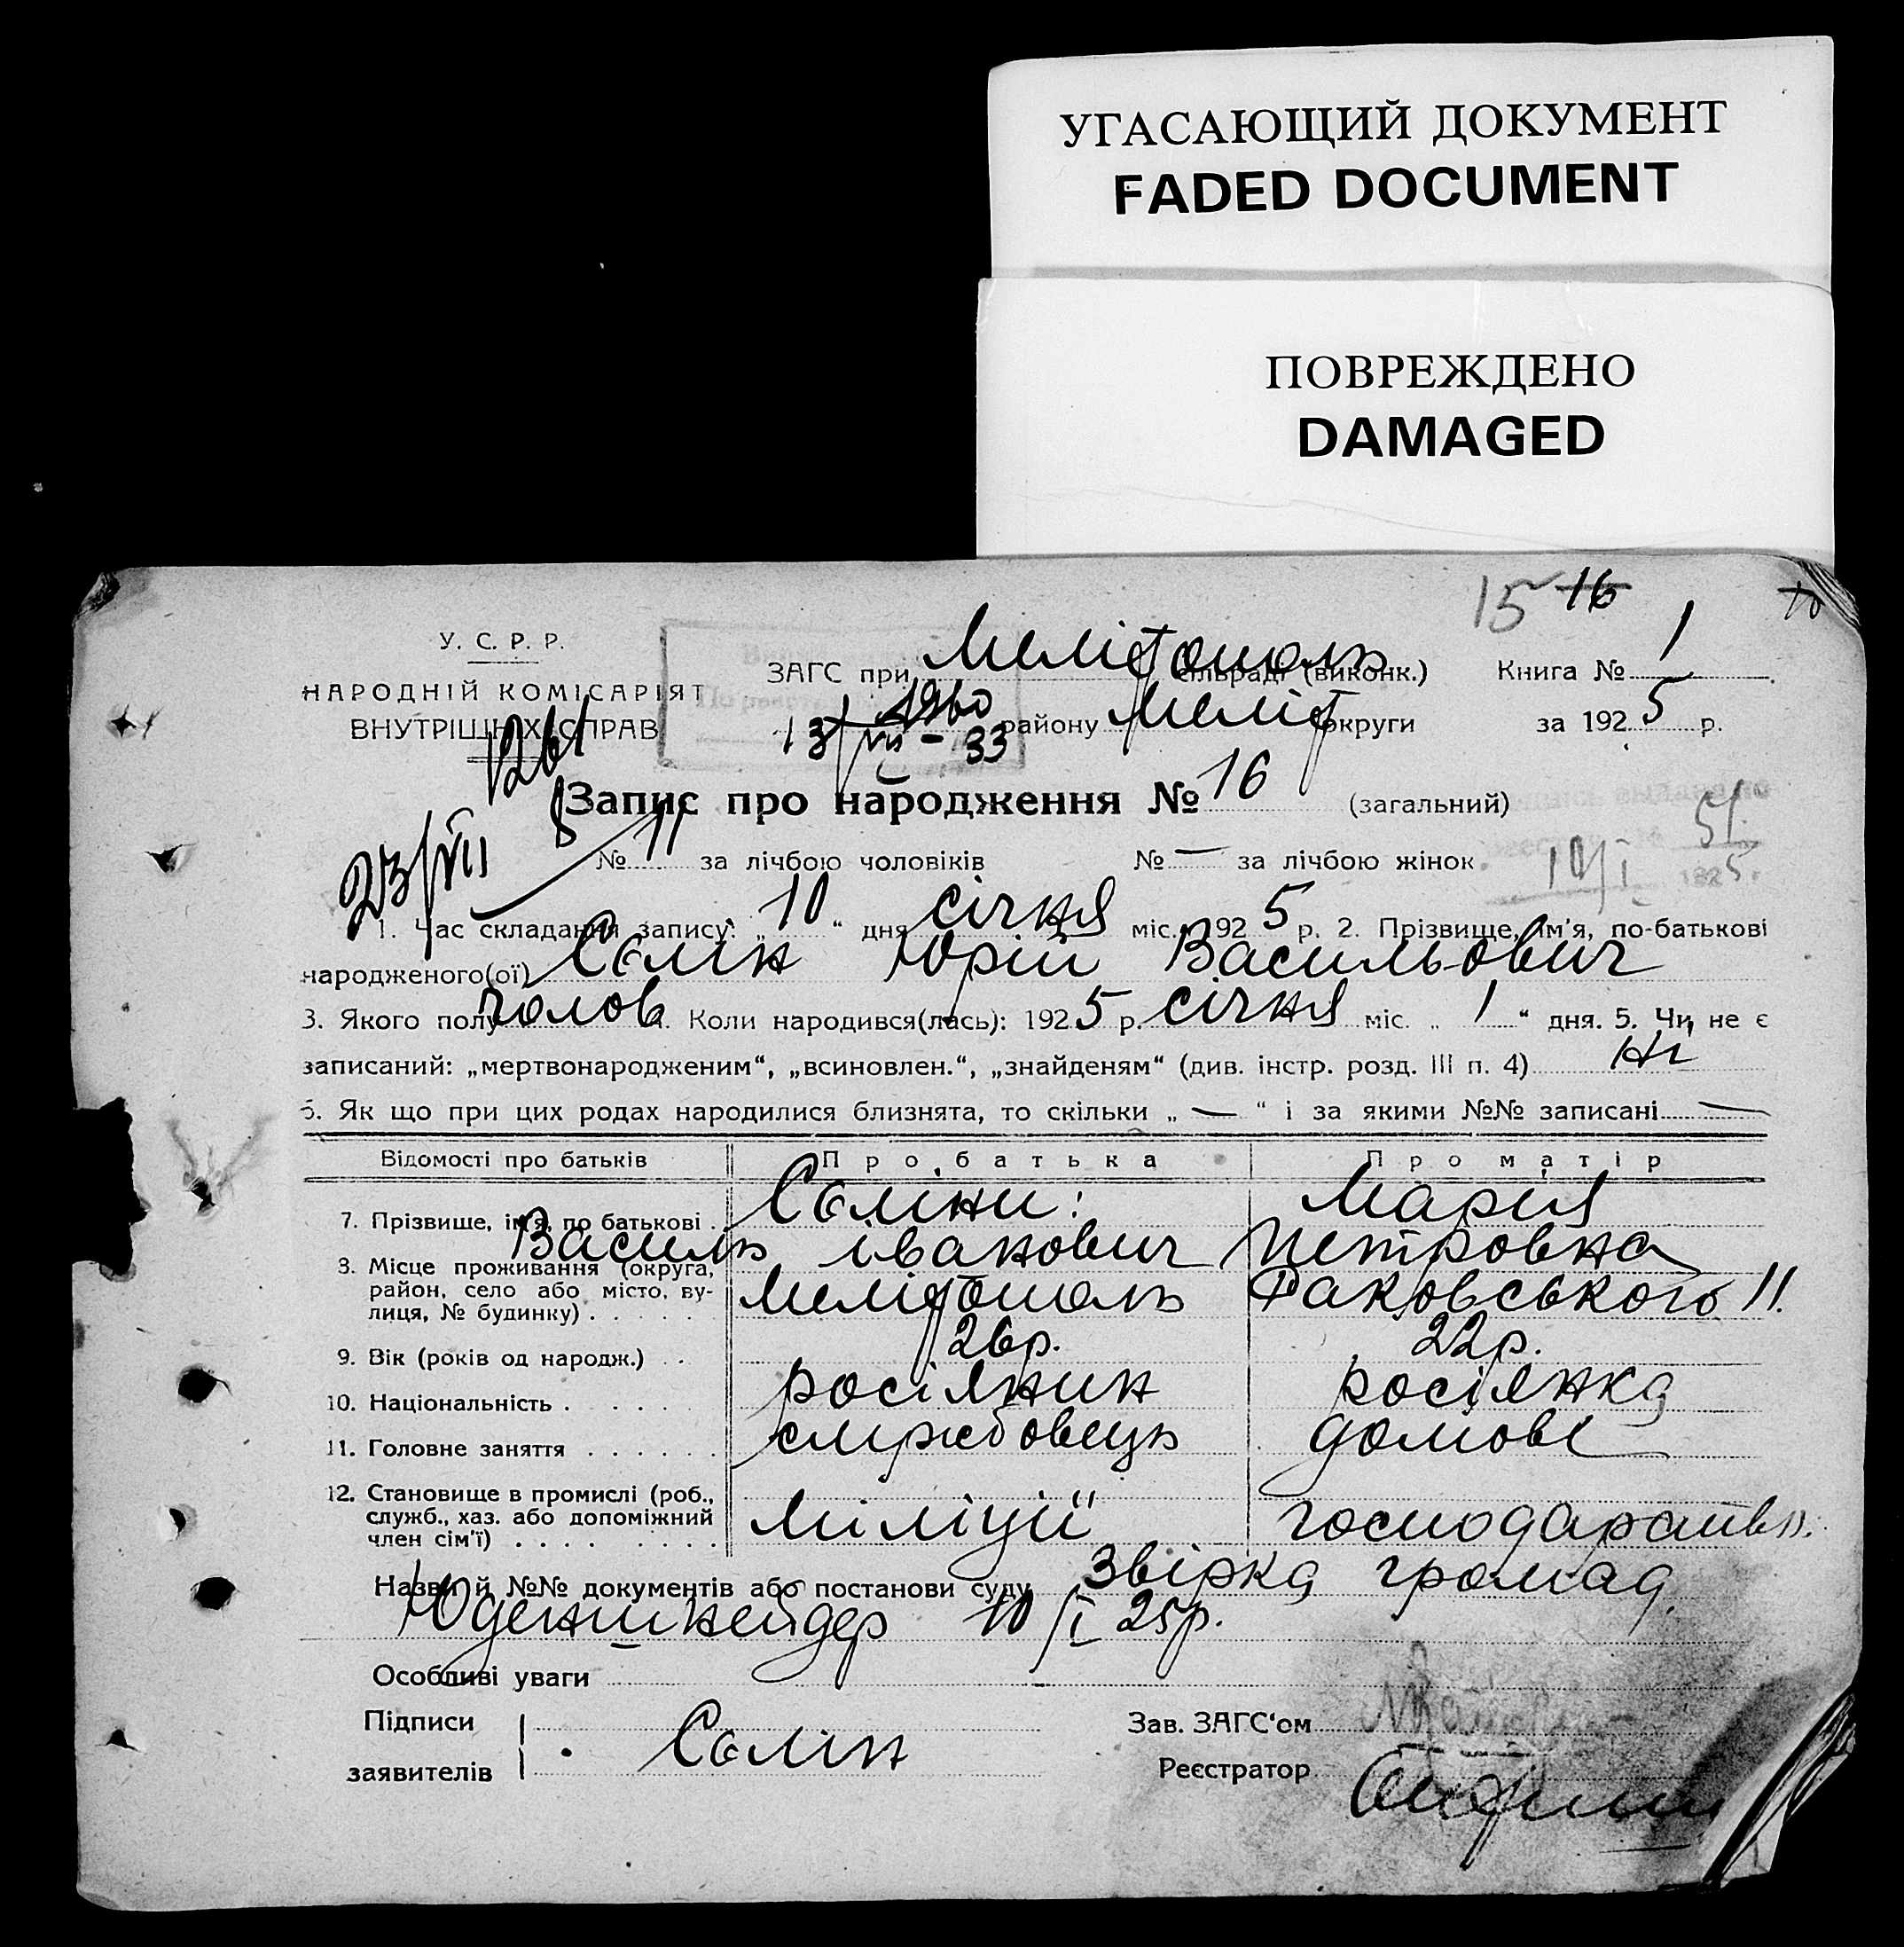 УГАСАЮЩИЙ ДОКУМЕНТ
FADED DOCUMENT
ПОВРЕЖДЕНО
DAMAGED
15 16
У. С. Р. Р.
НАРОДНІЙ КОМІСАРІЯТ
ВНУТРІШНІХ СПРАВ
ЗАГС при Мелітополь сільраді (виконк.) Книга № 1
району Меліт округи за 1925 р.
13/VII - 33
1261
23/VII
Запис про народження № 16 (загальний)
№ 11 за лічбою чоловіків № — за лічбою жінок
10/I 51 1925
1. Час складання запису: „10“ дня січня міс. 1925 р. 2. Прізвище, ім'я, по-батькові
народженого(ої) Салін Юрій Васильович
3. Якого полу чолов. Коли народився(лась): 1925 р. січня міс. „1“ дня. 5. Чи не є
записаний: „мертвонародженим“, „всиновлен.“, „знайденям“ (див. інстр. розд. III п. 4) Ні
6. Як що при цих родах народилися близнята, то скільки „—“ і за якими №№ записані —
Відомості про батьків Про батька Про матір
7. Прізвище, ім'я, по батькові . Саліни: Мария
Василь Іванович Петровна
8. Місце проживання (округа,
район, село або місто, ву-
лиця, № будинку) . . . . . Мелітополь Раковського 11.
9. Вік (років од народж.) . . 26р. 22р.
10. Національність . . . . . росіянин росіянка
11. Головне заняття . . . . . . службовець домове
12. Становище в промислі (роб.,
служб., хаз. або допоміжний
член сім'ї) . . . . . . . . міліції господарств.
Назви й №№ документів або постанови суду Звірка громад.
Юденшнейдер 10/I 25р.
Особливі уваги
Підписи
заявителів Салін
Зав. ЗАГС'ом
Реєстратор